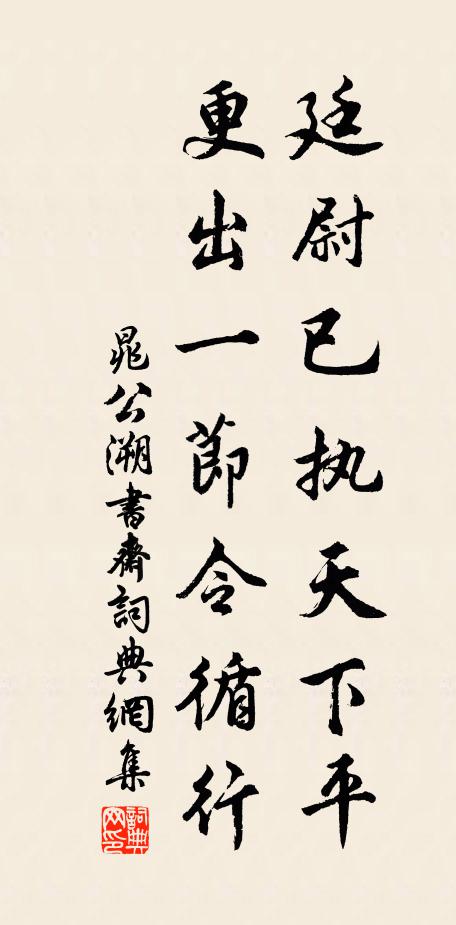 廷尉已执天下平
更出一節令循行
晁公溯書齋詞典網集
詞典網印